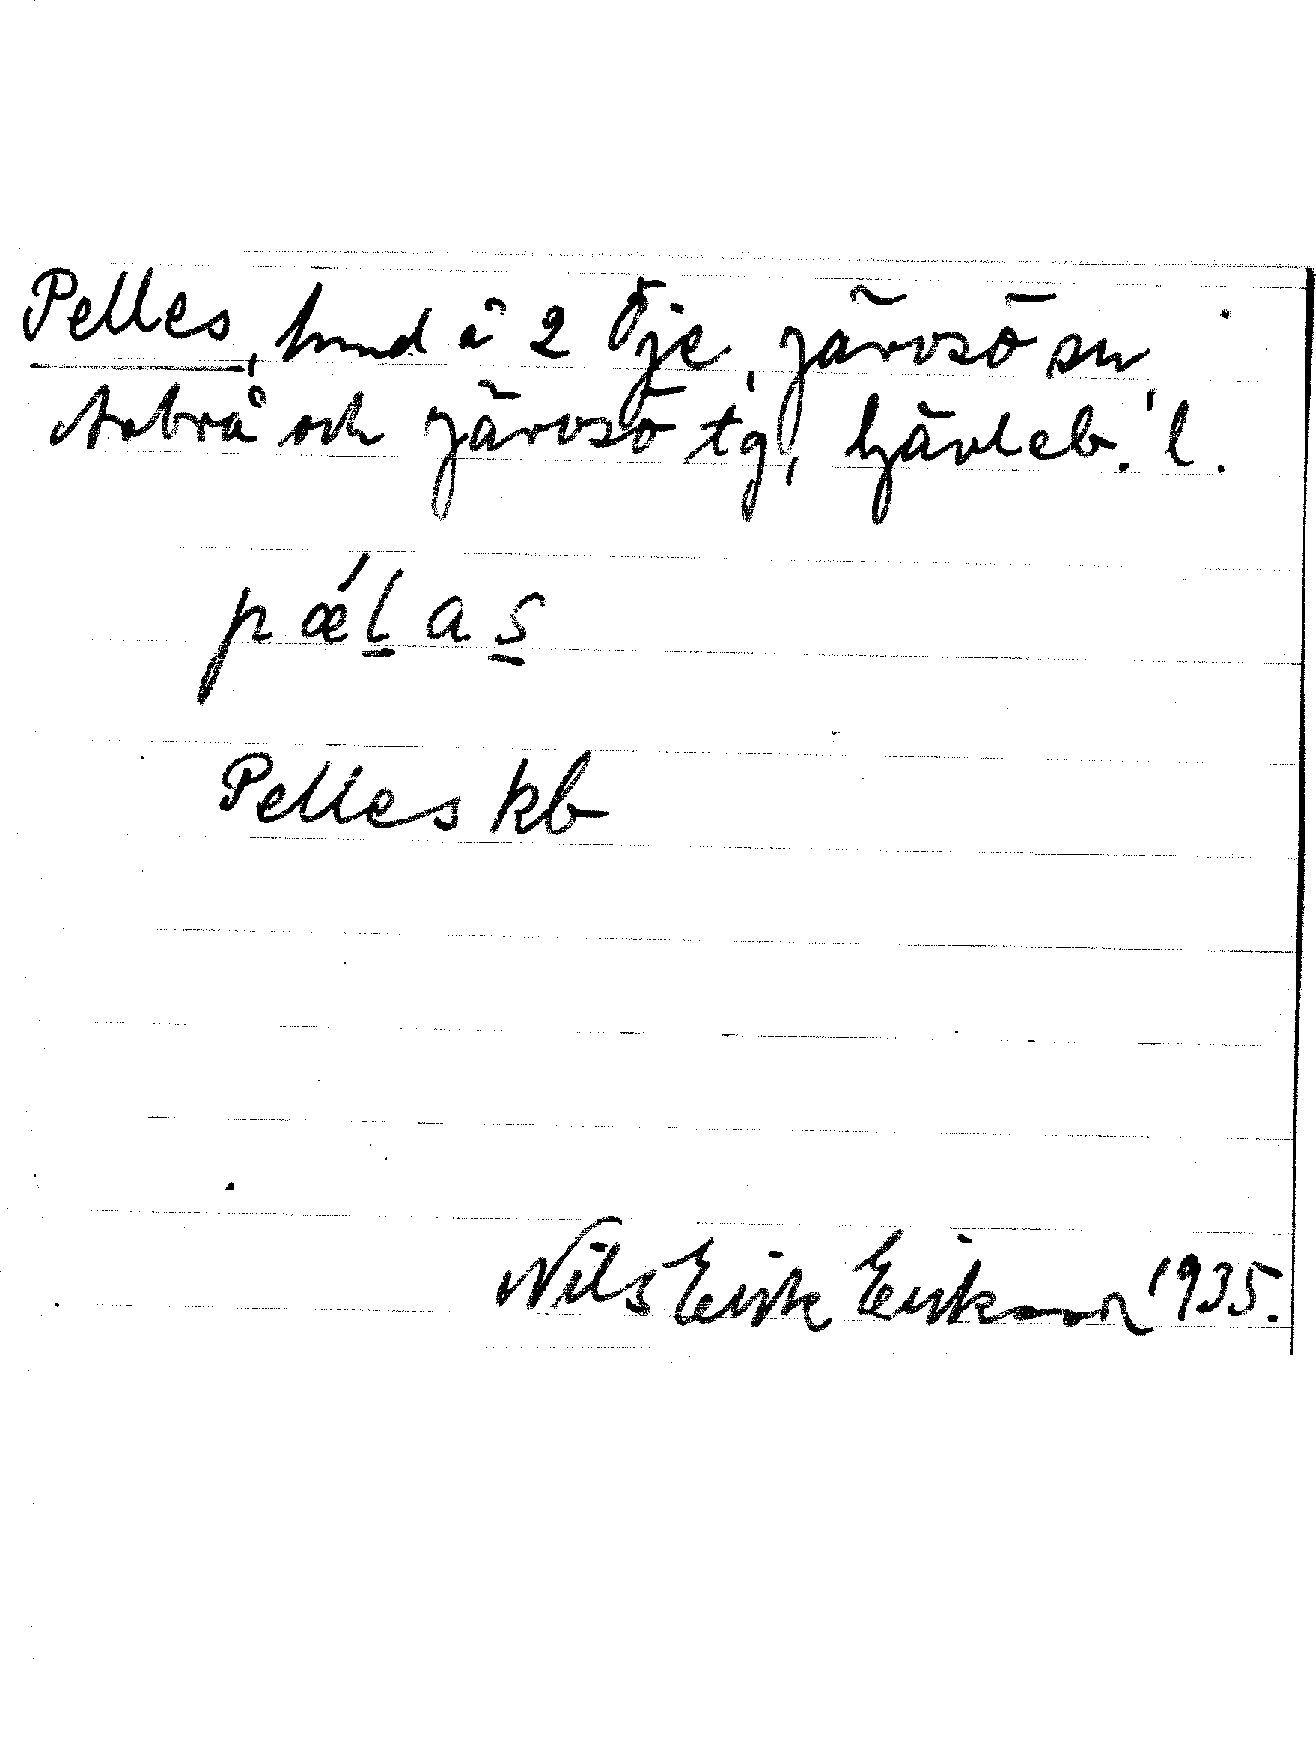 Pelles, hmd å 2 Öje, Järvsö sn,
Arbrå och Järvsö tg, Gävleb. l.
pǽlas
Pelles kb
Nils Erik Erikson 1935.